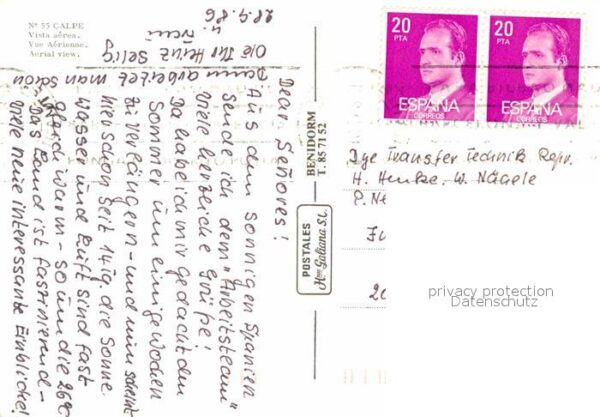 Nº 55 CALPE
Vista aérea.
Vue Aérienne.
Aerial view.
28.9.86
Dear Señores!
Aus dem sonnigen Spanien
sende ich dem "Arbeitsteam"
viele herzliche Grüße!
Da habe ich mir gedacht den
Sommer um einige Wochen
zu verlängern - und nun scheint
hier schon seit 14 Tg die Sonne.
Wasser und Luft sind fast
gleich warm - so um die 26°C
Das Land ist faszinierend -
viele neue interessante Einblicke!
Dann arbeitet man schon
Olé Ihr Heinz Selig
u.
BENIDORM
T. 85 71 52
POSTALES
Hnos Galiana S.L.
20
PTA
ESPAÑA
CORREOS
20
PTA
ESPAÑA
CORREOS
Transfer Technik Repr.
H. Henke, W. Nägele
P. Ne
privacy protection
Datenschutz